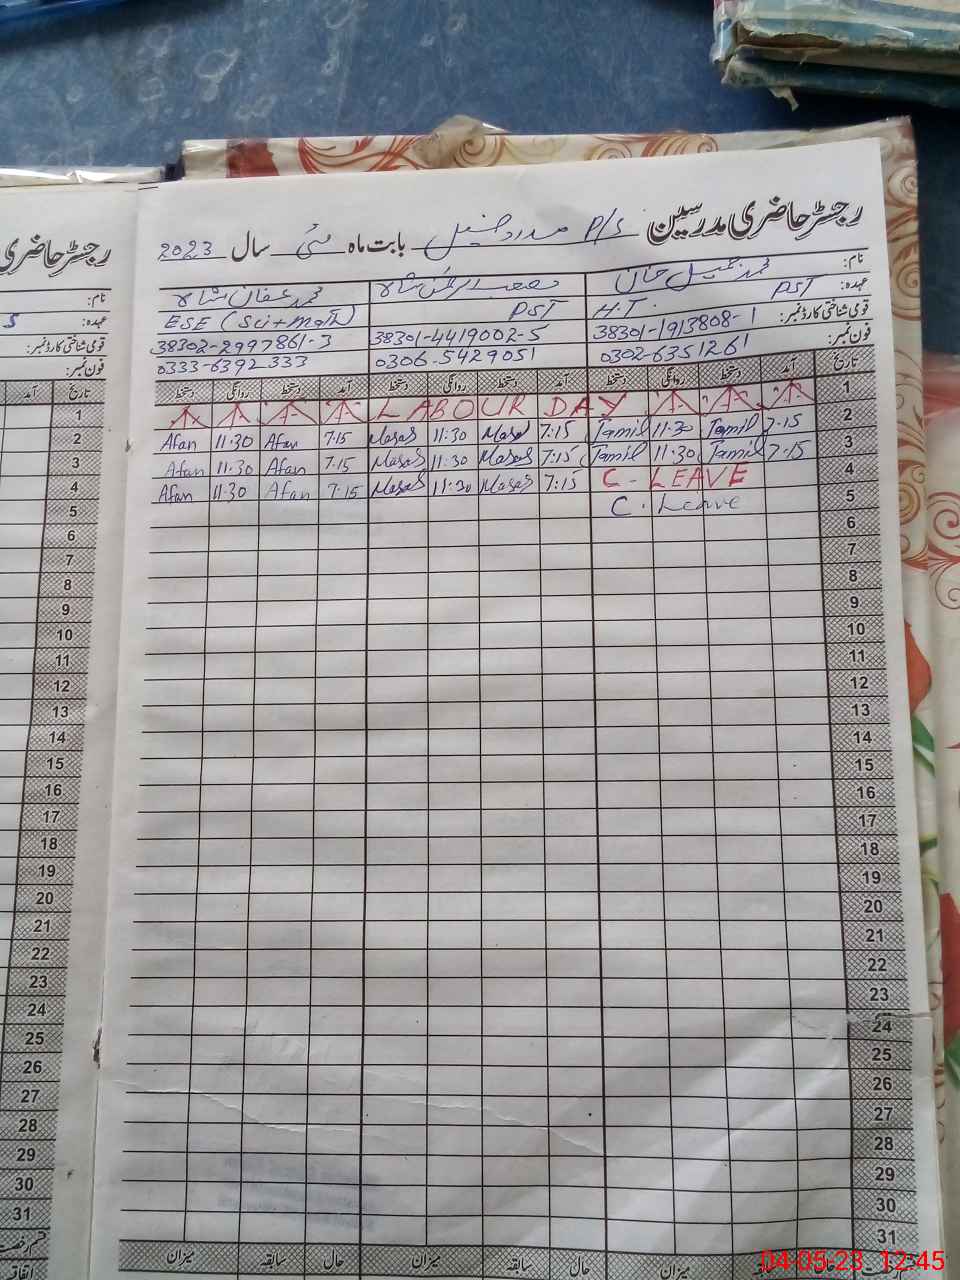 رجسٹر حاضری مدرسین P/S بابت ماہ مئی سال 2023
نام: محمد جمیل خان
محمد عفان شاہ
عہدہ: PST H.T. PST ESE (Sci+Math)
قومی شناختی کارڈ نمبر: 38301-1913808-1 38301-4419002-5 38302-2997861-3
فون نمبر: 0302-6351261 0306-5429051 0333-6392333
تاریخ آمد دستخط روانگی دستخط آمد دستخط روانگی دستخط آمد دستخط روانگی دستخط
1 LABOUR DAY
2 7:15 Jamil 11:30 Jamil 7:15 Masab 11:30 Masab 7:15 Afan 11:30 Afan
3 7:15 Jamil 11:30 Jamil 7:15 Masab 11:30 Masab 7:15 Afan 11:30 Afan
4 C - LEAVE 7:15 Masab 11:30 Masab 7:15 Afan 11:30 Afan
5 C. Leave
6
7
8
9
10
11
12
13
14
15
16
17
18
19
20
21
22
23
24
25
26
27
28
29
30
31
حال سابقہ میزان حال سابقہ میزان
رجسٹر حاضری
نام:
عہدہ:
قومی شناختی کارڈ نمبر:
فون نمبر:
تاریخ آمد
1
2
3
4
5
6
7
8
9
10
11
12
13
14
15
16
17
18
19
20
21
22
23
24
25
26
27
28
29
30
31
قسم رخصت
اتفاقیہ
04-05-23 12:45